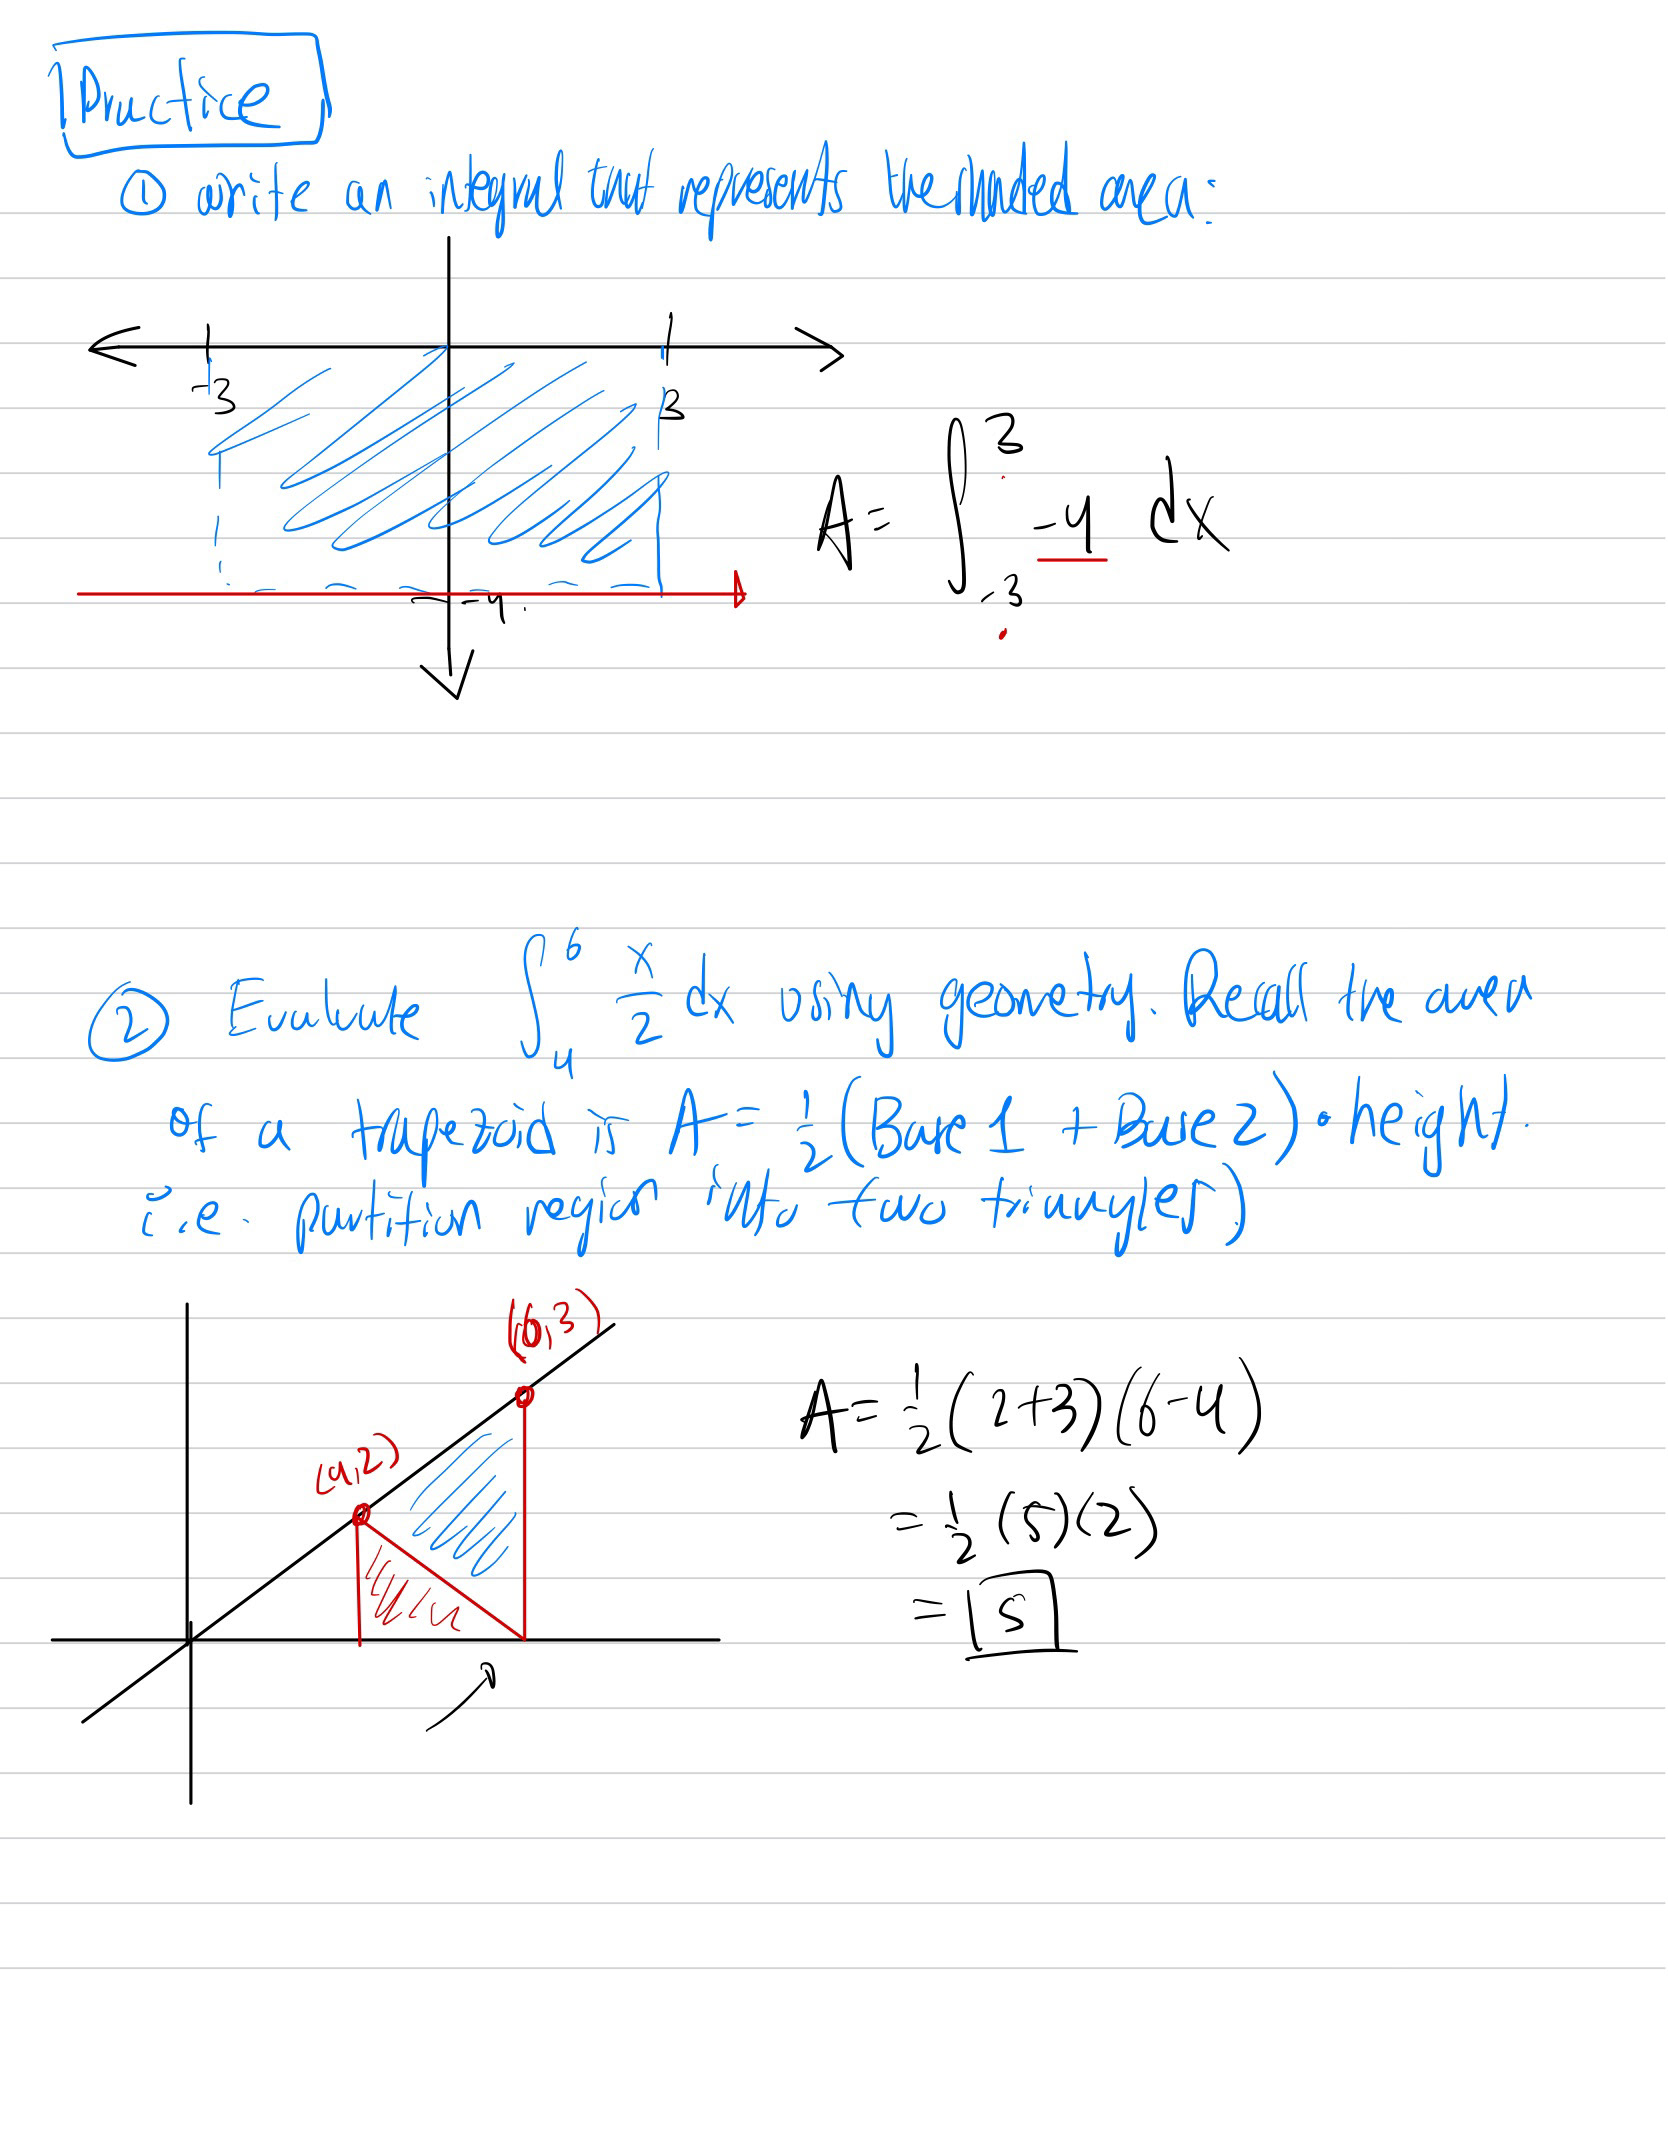 Practice
① write an integral that represents the shaded area:
-3
3
-4
A = ∫_{-3}^{3} -4 dx
② Evaluate ∫_4^6 x/2 dx using geometry. Recall the area
of a trapezoid is A = 1/2 (Base 1 + Base 2) • height.
i.e. partition region into two triangles)
(6,3)
(4,2)
A = 1/2 (2+3)(6-4)
= 1/2 (5)(2)
= 5